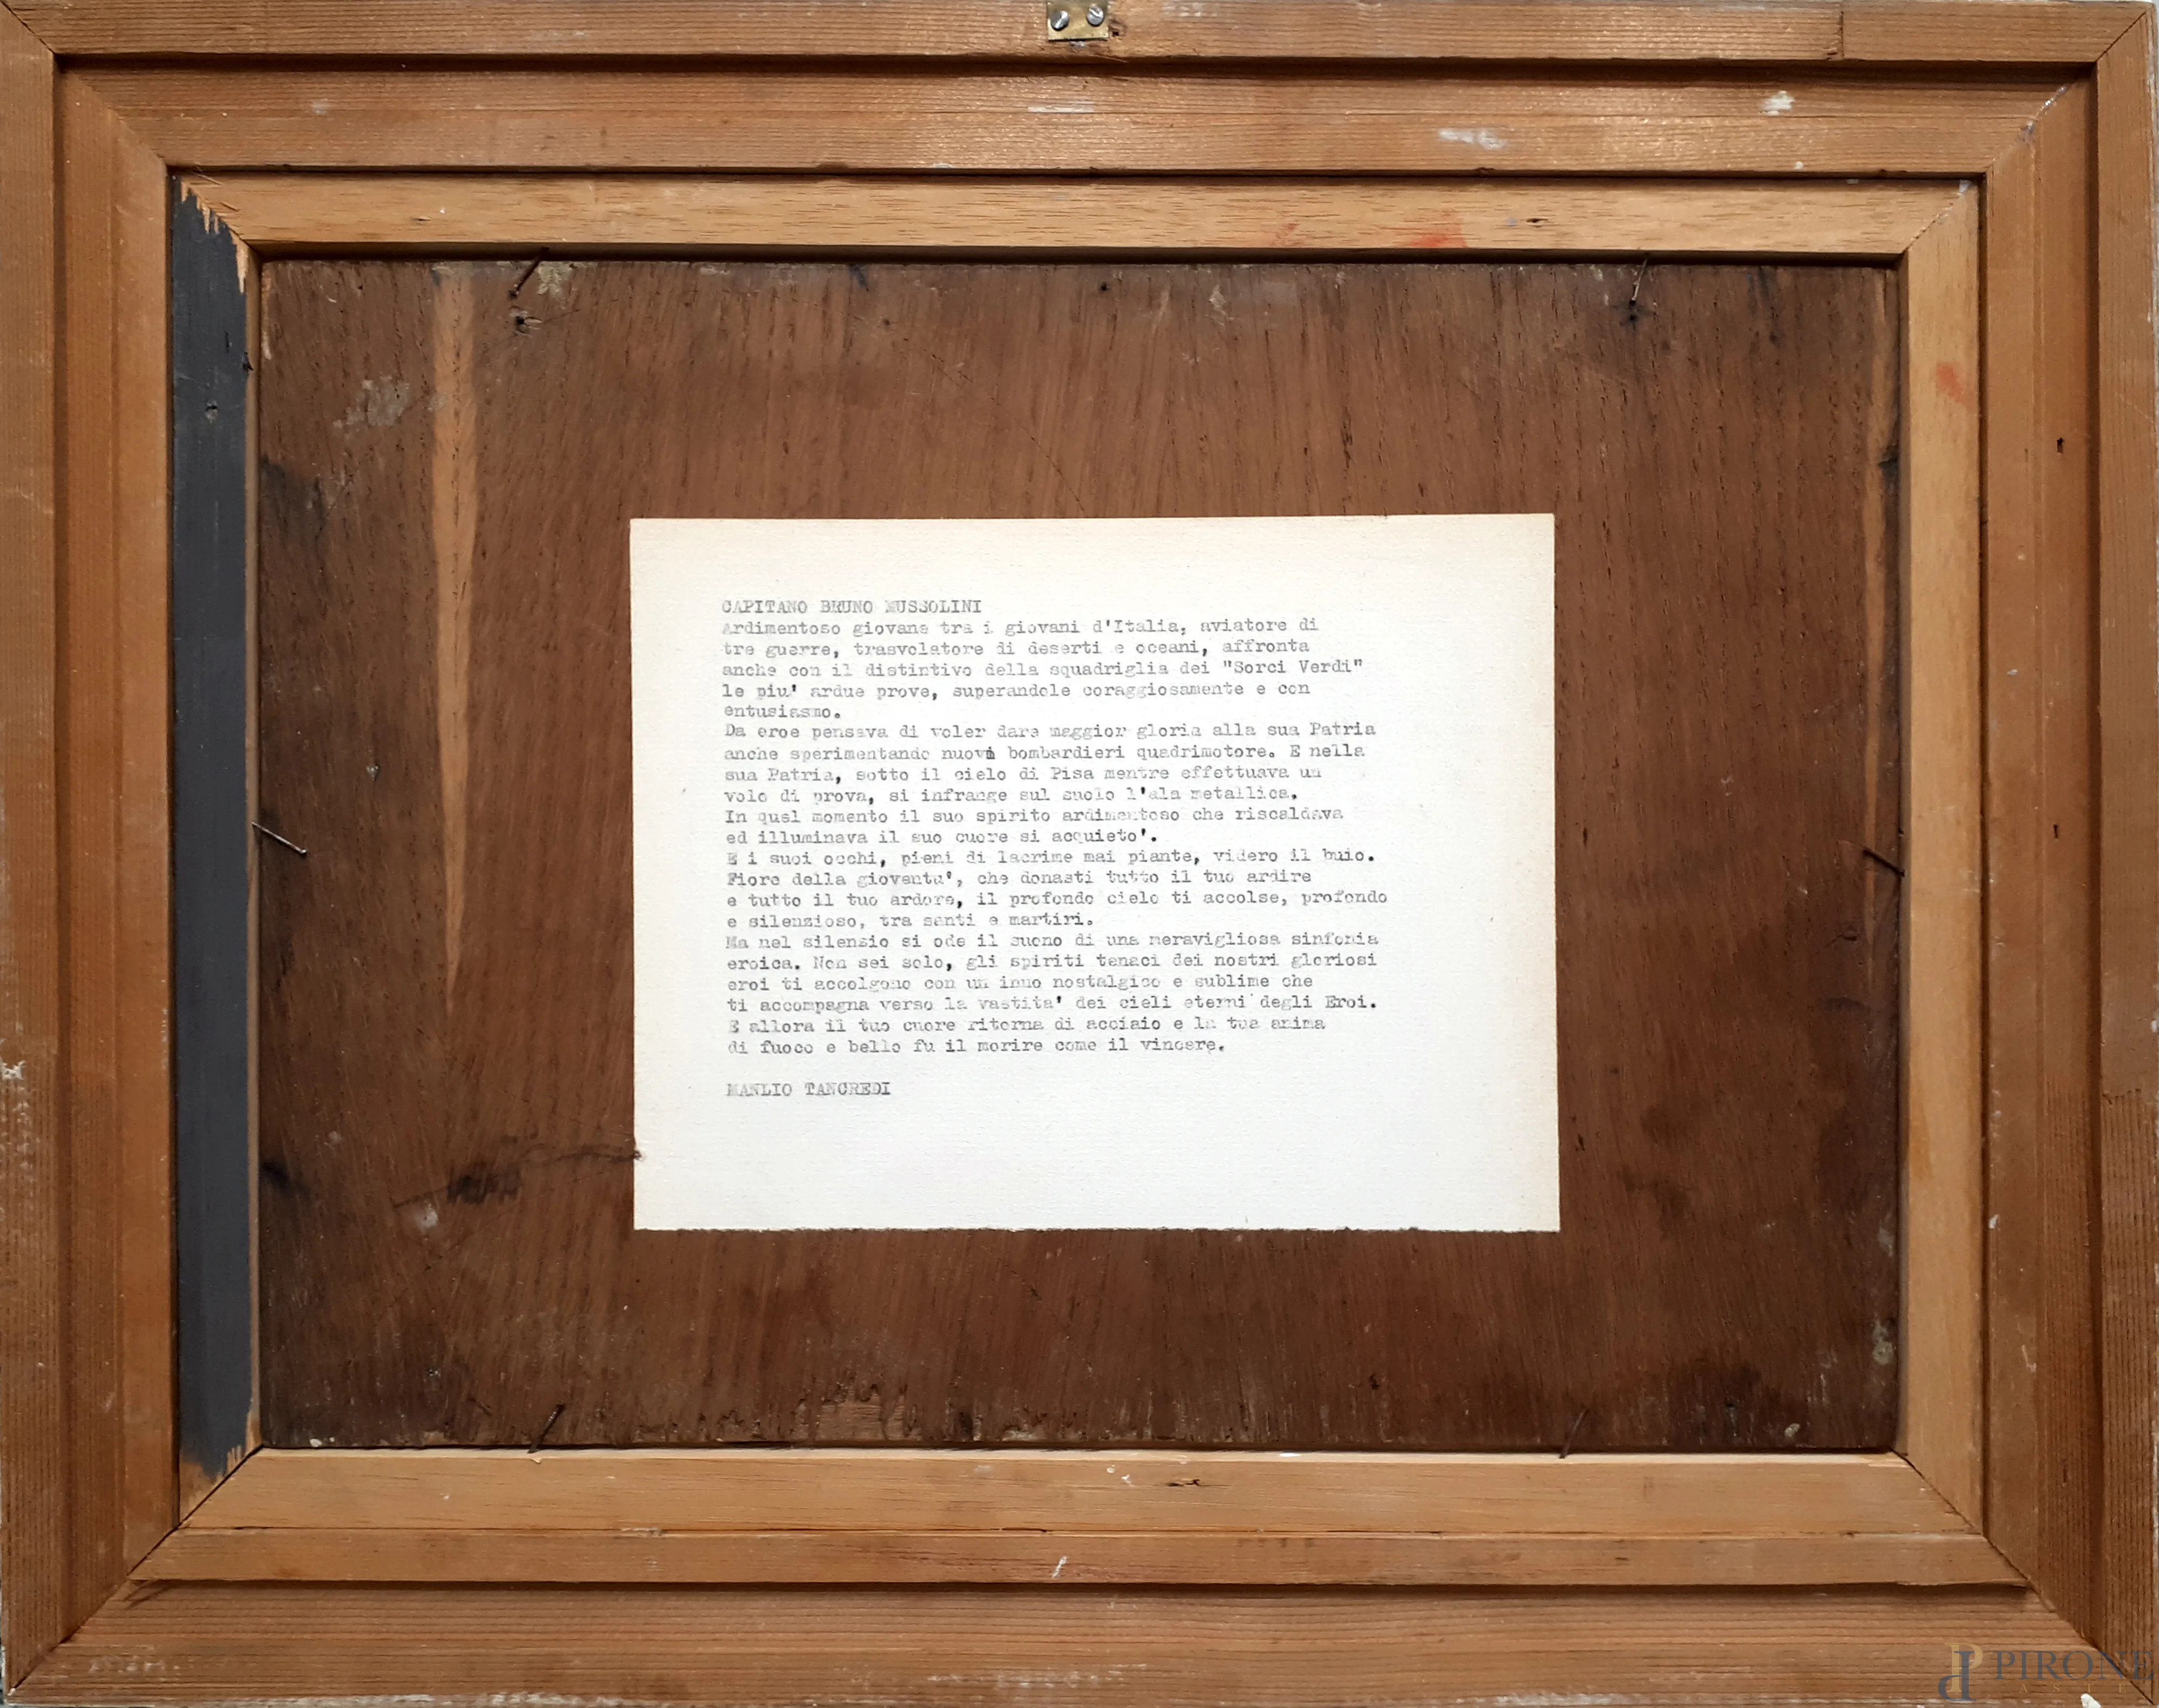 CAPITANO BRUNO MUSSOLINI
Ardimentoso giovane tra i giovani d'Italia, aviatore di
tre guerre, trasvolatore di deserti e oceani, affronta
anche con il distintivo della squadriglia dei "Sorci Verdi"
le piu' ardue prove, superandole coraggiosamente e con
entusiasmo.
Da eroe pensava di voler dare maggior gloria alla sua Patria
anche sperimentando nuovi bombardieri quadrimotore. E nella
sua Patria, sotto il cielo di Pisa mentre effettuava un
volo di prova, si infrange sul suolo l'ala metallica.
In quel momento il suo spirito ardimentoso che riscaldava
ed illuminava il suo cuore si acquieto'.
E i suoi occhi, pieni di lacrime mai piante, videro il buio.
Fiore della gioventu', che donasti tutto il tuo ardire
e tutto il tuo ardore, il profondo cielo ti accolse, profondo
e silenzioso, tra santi e martiri.
Ma nel silenzio si ode il suono di una meravigliosa sinfonia
eroica. Non sei solo, gli spiriti tenaci dei nostri gloriosi
eroi ti accolgono con un inno nostalgico e sublime che
ti accompagna verso la vastita' dei cieli eterni degli Eroi.
E allora il tuo cuore ritorna di acciaio e la tua anima
di fuoco e bello fu il morire come il vincere.
MANLIO TANCREDI
PIRONE